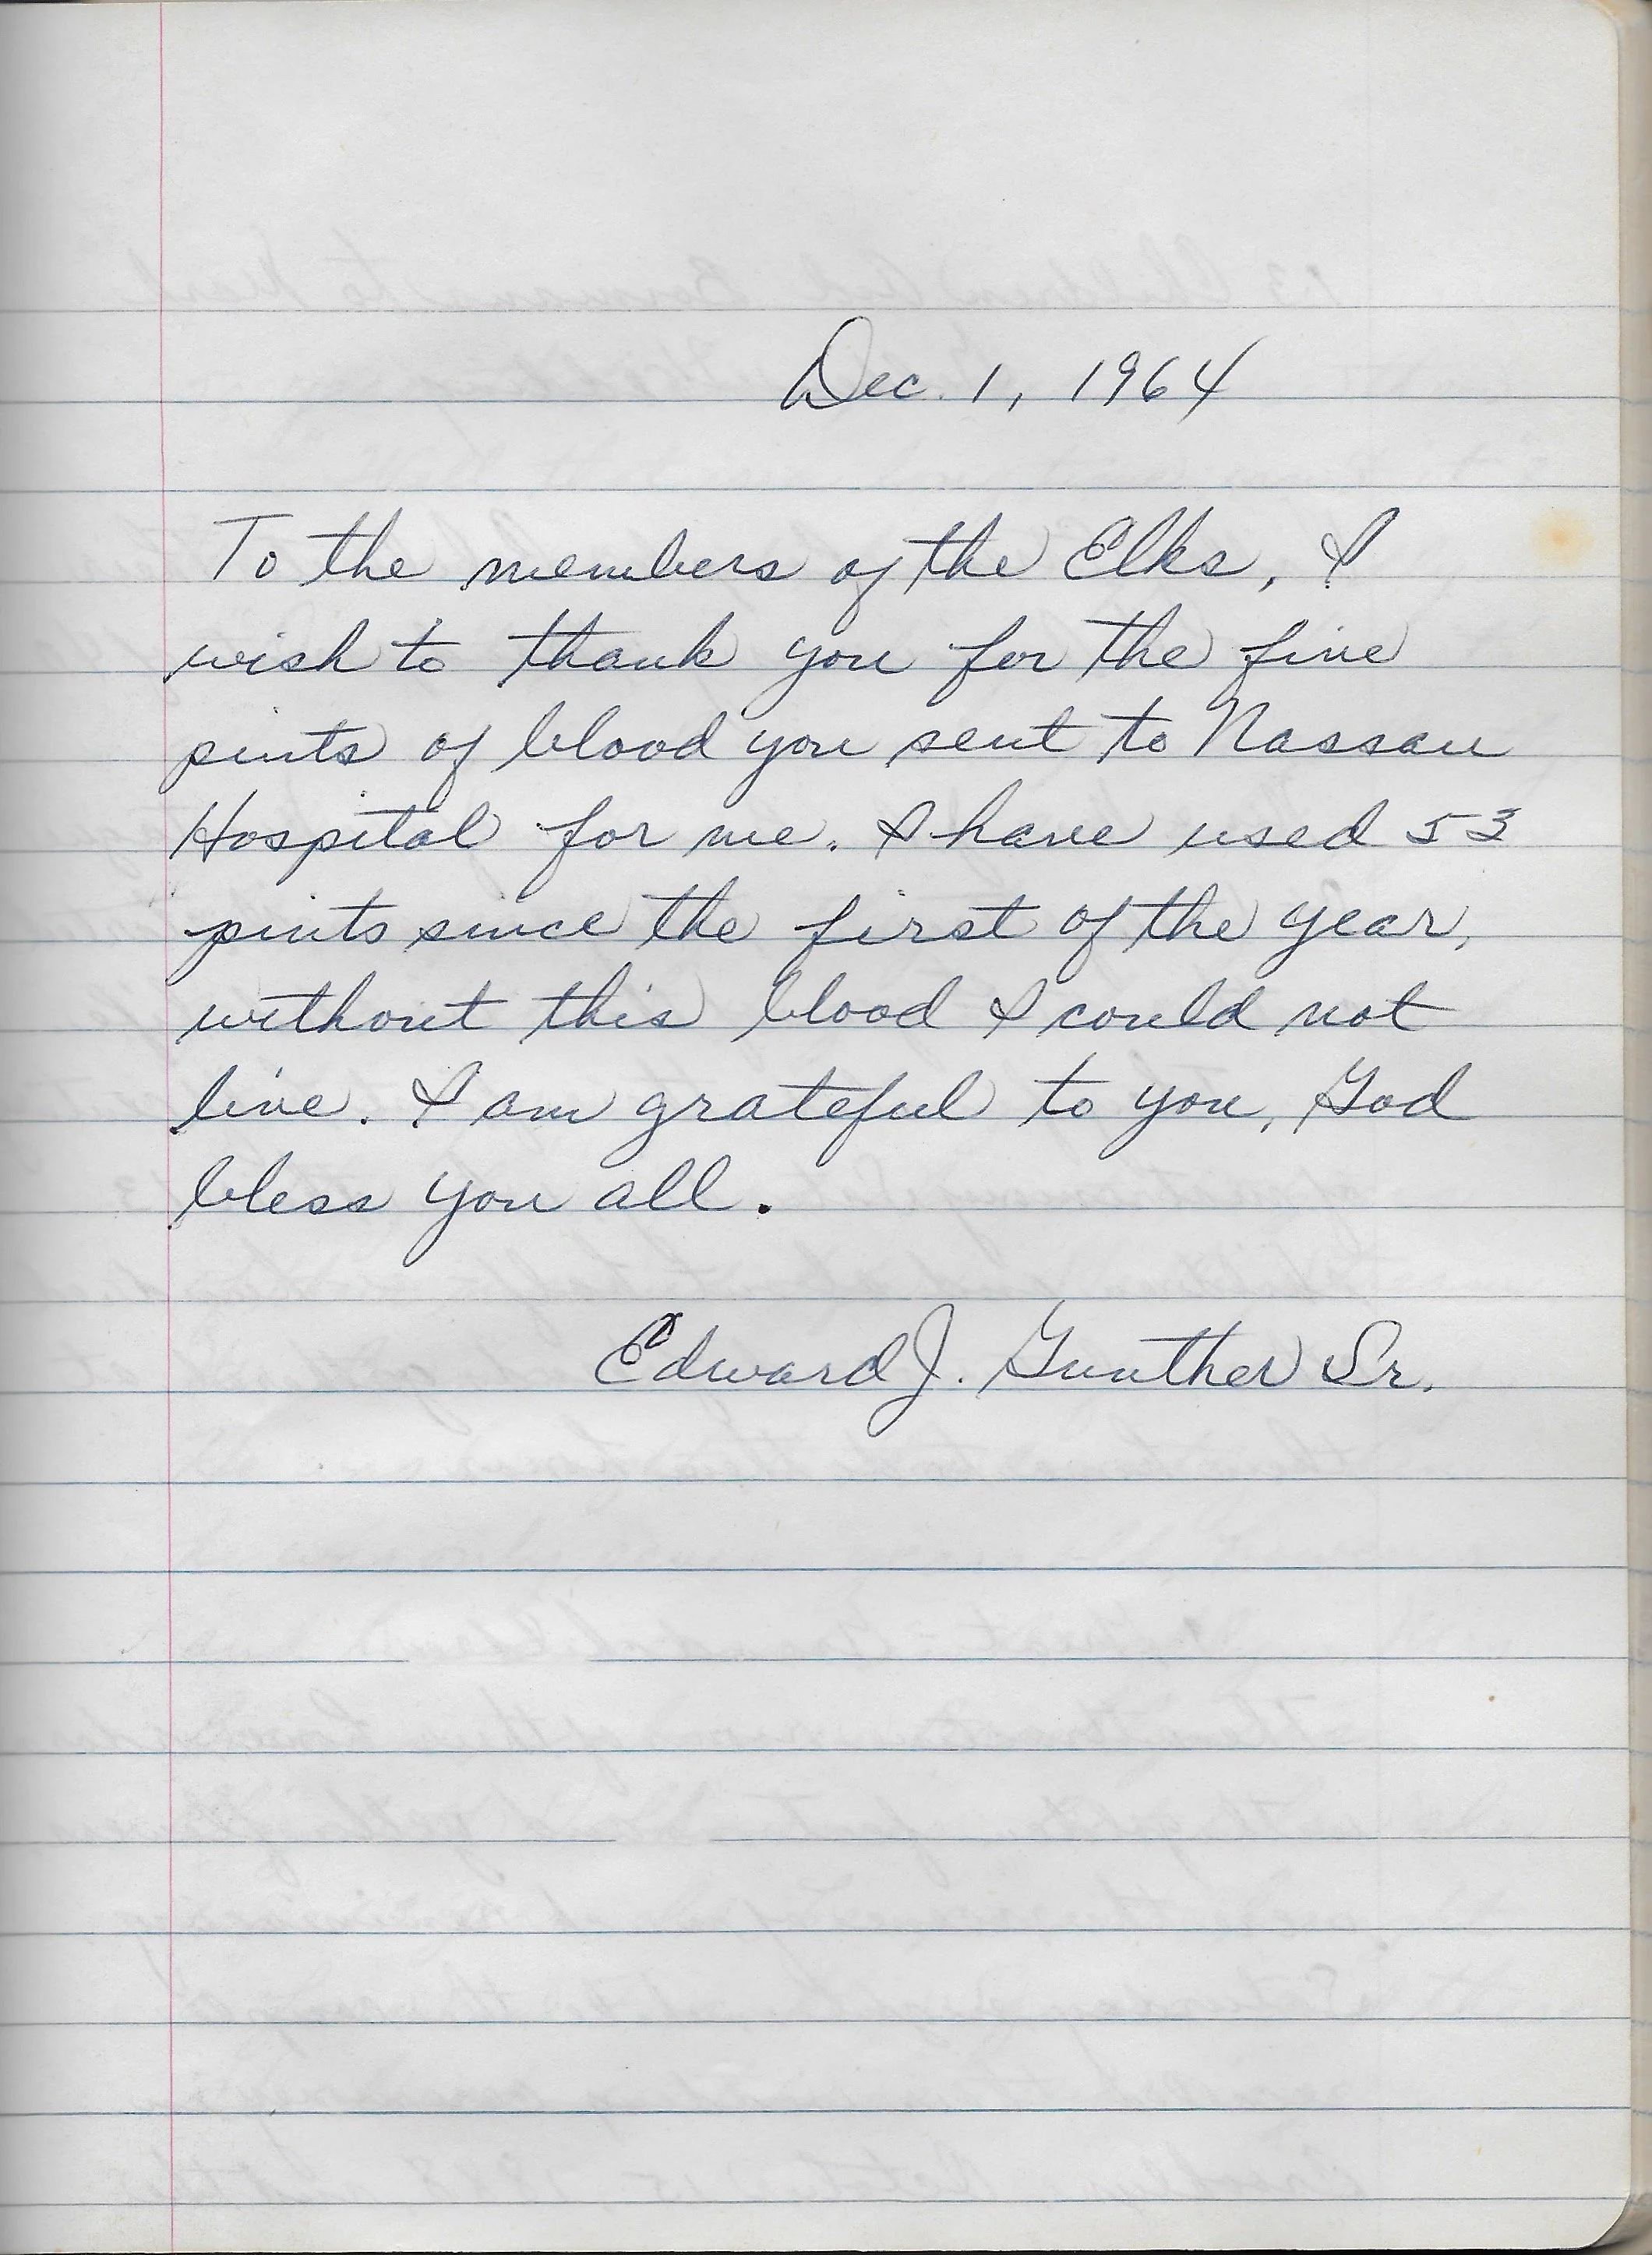 Dec. 1, 1964
To the members of the Elks, I
wish to thank you for the five
pints of blood you sent to Nassau
Hospital for me. I have used 53
pints since the first of the year,
without this blood I could not
live. I am grateful to you, God
bless you all.
Edward J. Gunther Sr.